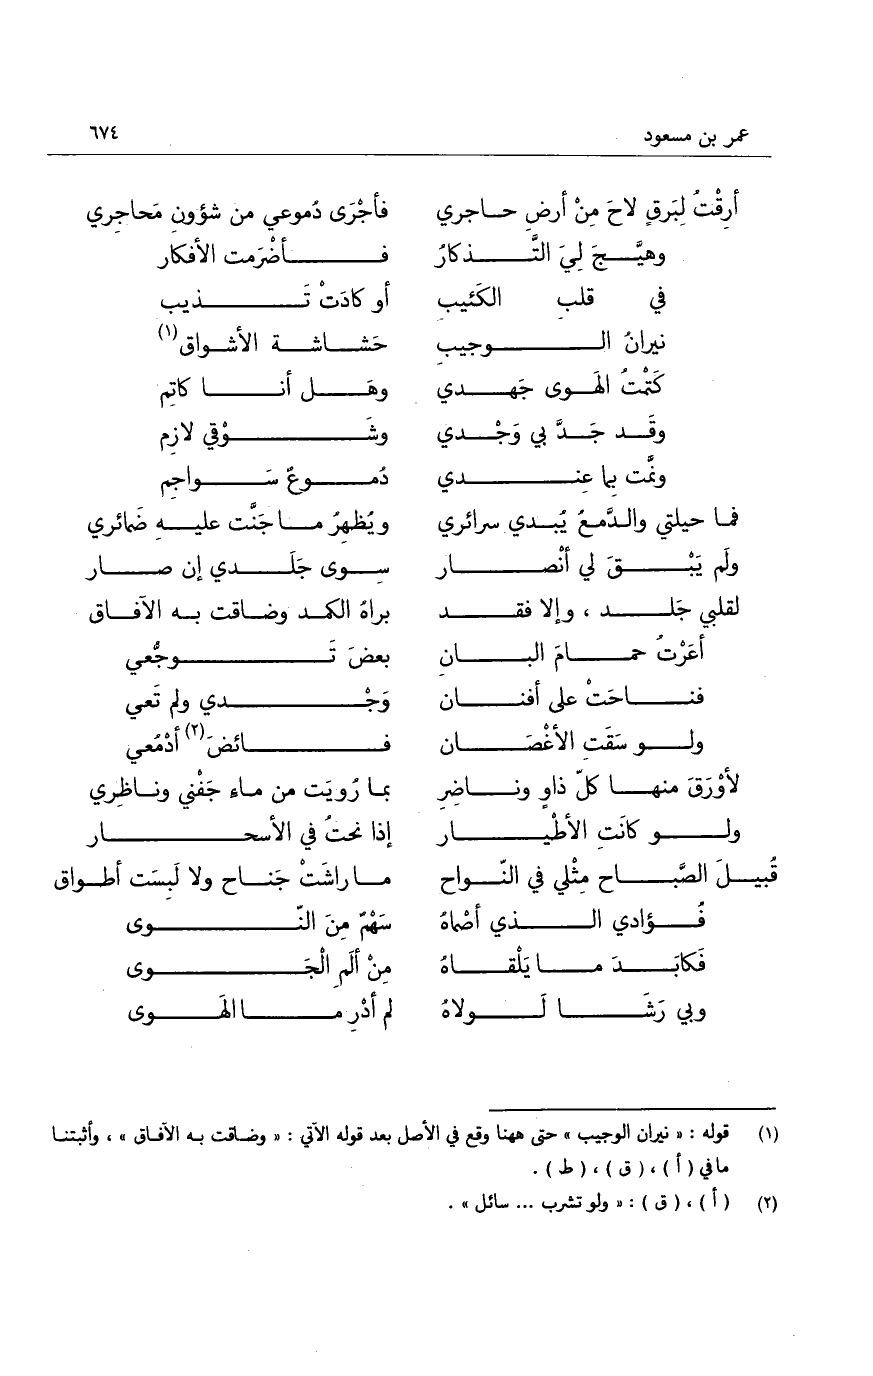 عمر بن مسعود ٦٧٤
أرِقْتُ لِبَرقٍ لاحَ مِنْ أرضِ حاجري فأجْرَى دُموعي من شؤونِ مَحاجري
وهيَّجَ لِيَ التَّذكارُ فأضْرَمت الأفكار
في قلبِ الكَئيبِ أو كادَتْ تَذيب
نيرانُ الوجيبِ حَشاشة الأشواقِ(١)
كَتَمْتُ الهَوى جَهدي وهَل أنا كاتِم
وقَد جَدَّ بي وَجْدي وشَوْقي لازِم
ونَمَّت بِما عِندي دُموعٌ سَواجِم
فما حيلتي والدَّمعُ يُبدي سرائري ويُظهِرُ ما جَنَّت عليه ضَمائري
ولَم يَبْقَ لي أنْصار سِوى جَلَدي إن صار
لقلبي جَلد ، وإلا فقد براهُ الكمد وضاقت به الآفاق
أعَرْتُ حمامَ البانِ بعضَ تَوجُّعي
فناحَتْ على أفنان وَجْدي ولم تَعي
ولو سَقَتِ الأغْصَان فائضَ(٢) أدْمُعي
لأوْرَقَ منها كلّ ذاوٍ وناضِرِ بما رُويَت من ماء جَفْني وناظري
ولو كانَتِ الأطْيار إذا نحتُ في الأسحار
قُبيلَ الصَّباح مثْلي في النّواح ما راشَتْ جَناح ولا لَبِسَت أطواق
فُؤادي الذي أصْماهُ سَهْمٌ مِنَ النّوى
فَكابَدَ ما يَلْقاهُ مِنْ ألَمِ الْجَوى
وبي رَشَا لَولاهُ لم أدْرِ ما الهَوى
(١) قوله : « نيران الوجيب » حتى ههنا وقع في الأصل بعد قوله الآتي : « وضاقت به الآفاق » ، وأثبتنا
ما في ( أ ) ، ( ق ) ، ( ط ) .
(٢) ( أ ) ، ( ق ) : « ولو تشرب ... سائل » .